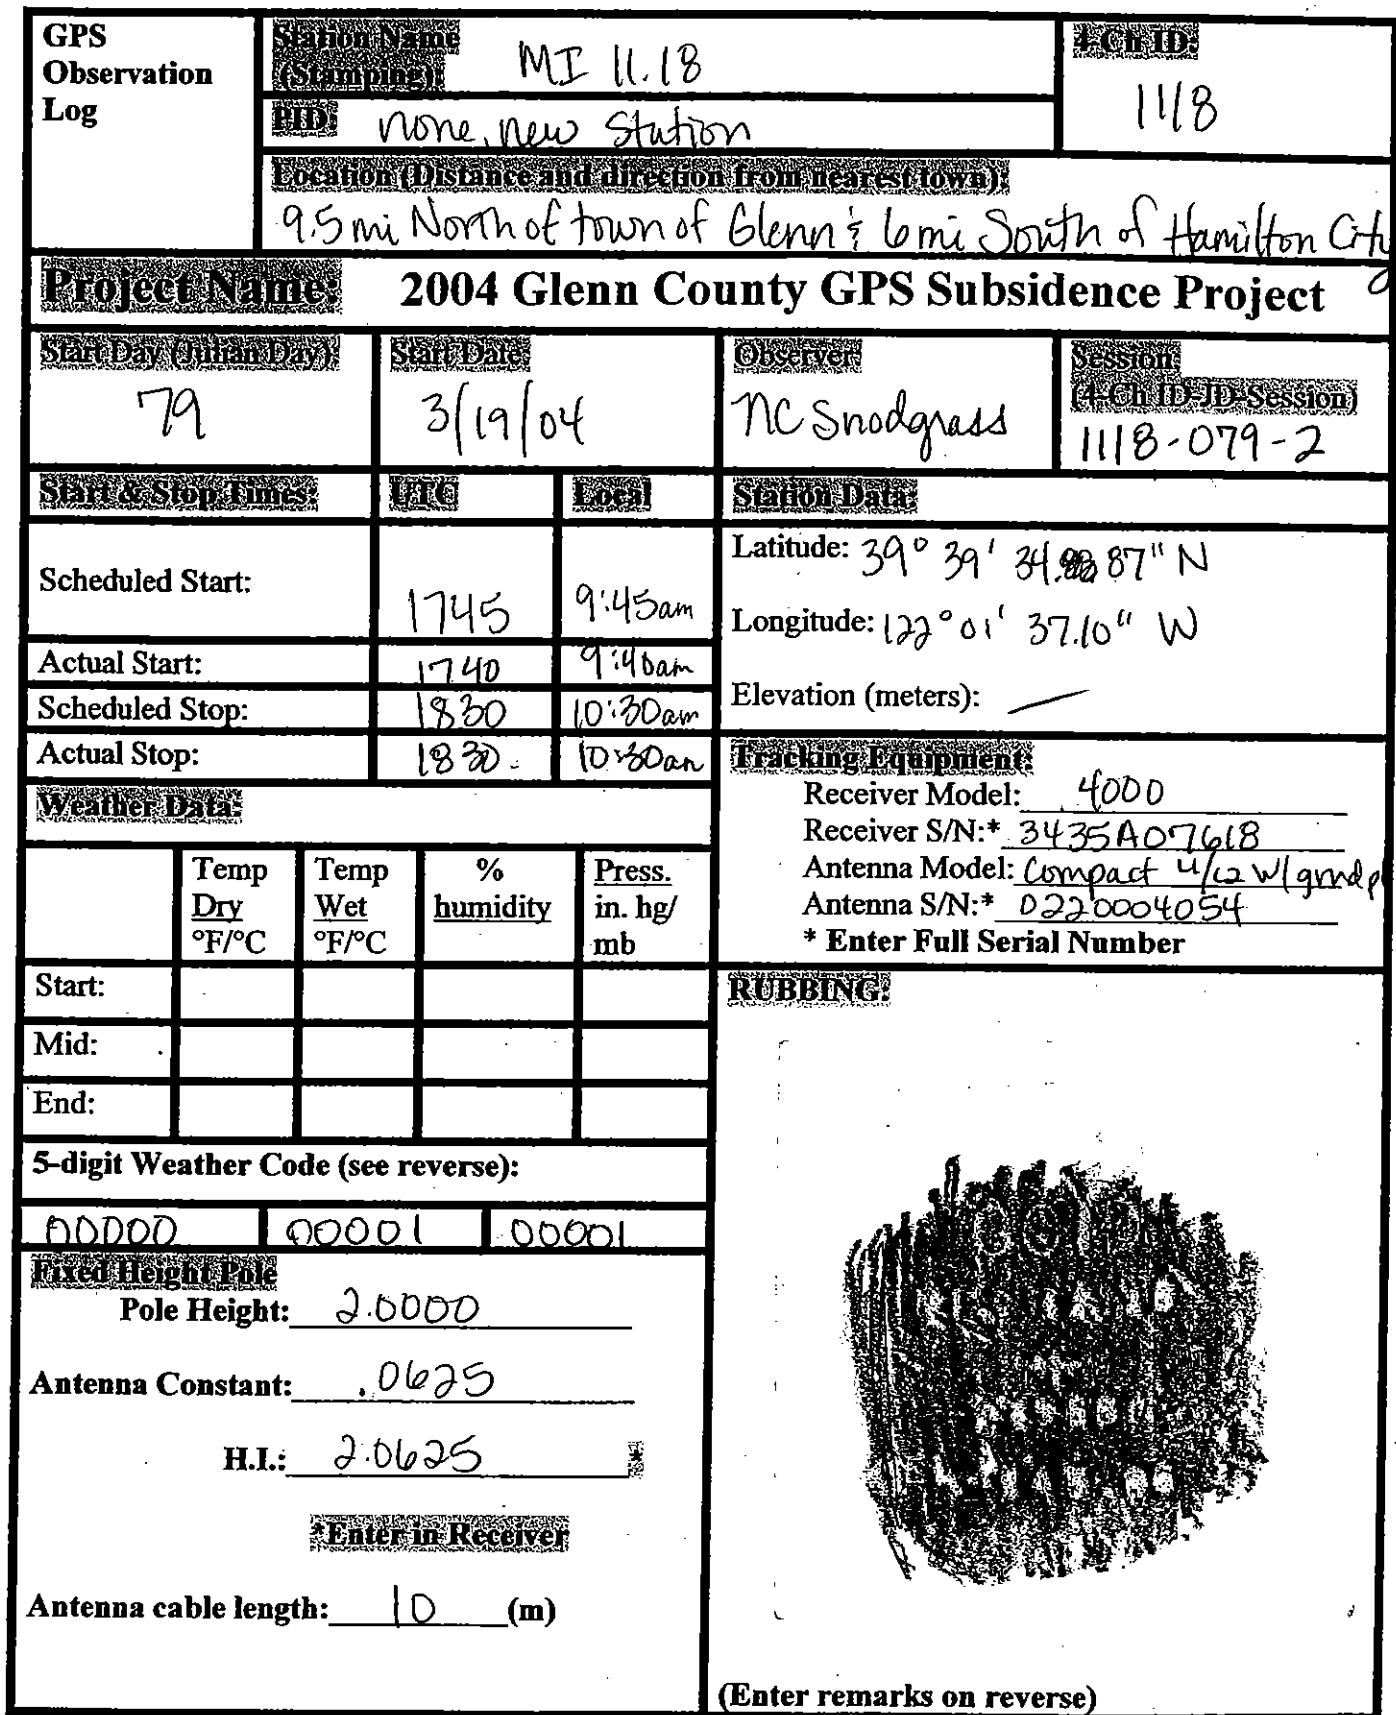 GPS
Observation
Log
Station Name
(Stamping): MI 11.18
4-Ch ID:
1118
PID: none, new Station
Location (Distance and direction from nearest town):
9.5 mi North of town of Glenn & 6 mi South of Hamilton City
Project Name: 2004 Glenn County GPS Subsidence Project
Start Day (Julian Day):
79
Start Date:
3/19/04
Observer:
NC Snodgrass
Session:
(4-Ch ID-JD-Session)
1118-079-2
Start & Stop Times: UTC Local
Scheduled Start: 1745 9:45am
Actual Start: 1740 9:40am
Scheduled Stop: 1830 10:30am
Actual Stop: 1830 10:30am
Station Data:
Latitude: 39° 39' 34.87" N
Longitude: 122° 01' 37.10" W
Elevation (meters): —
Tracking Equipment:
Receiver Model: 4000
Receiver S/N:* 3435A07618
Antenna Model: Compact L1/L2 w/grndpl
Antenna S/N:* 0220004054
* Enter Full Serial Number
Weather Data:
Temp Dry °F/°C
Temp Wet °F/°C
% humidity
Press. in. hg/ mb
Start:
Mid:
End:
5-digit Weather Code (see reverse):
00000 00001 00001
Fixed Height Pole
Pole Height: 2.0000
Antenna Constant: .0625
H.I.: 2.0625 *
*Enter in Receiver
Antenna cable length: 10 (m)
RUBBING:
(Enter remarks on reverse)